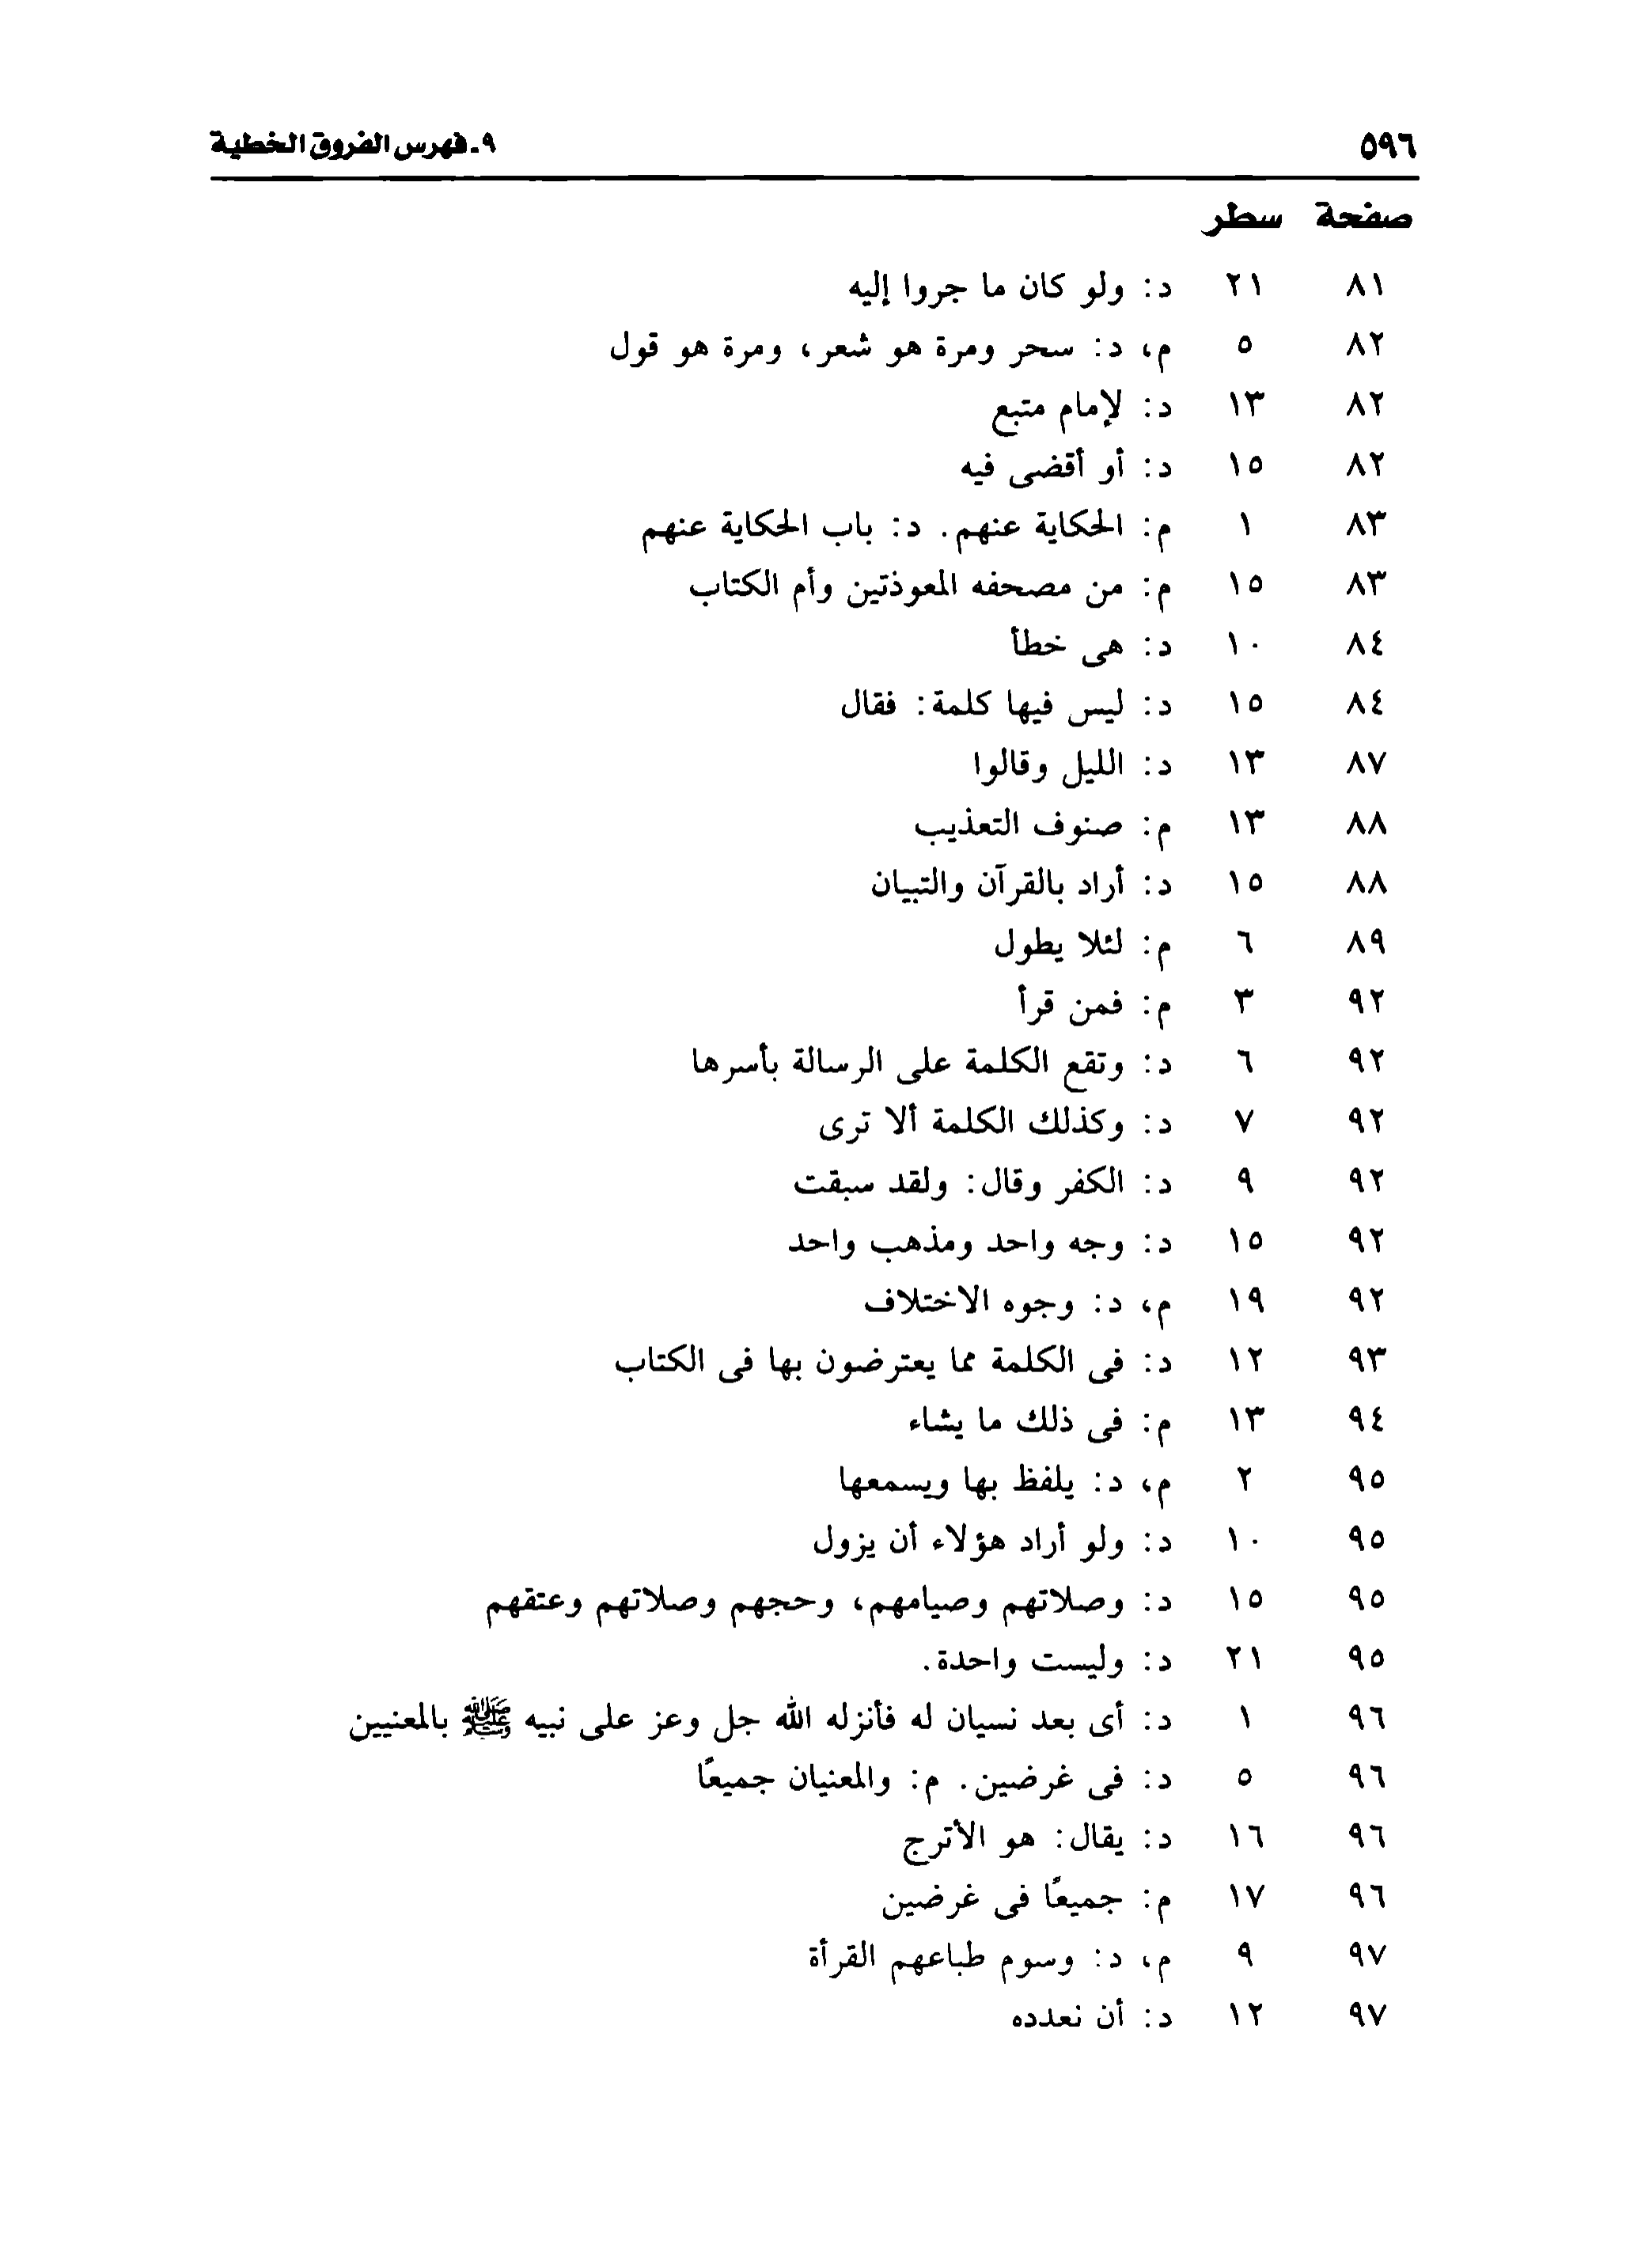 ٥٩٦ ٩ـ فهرس الفروق الخطية
صفحة سطر
٨١ ٢١ د: ولو كان ما جروا إليه
٨٢ ٥ م، د: سحر ومرة هو شعر، ومرة هو قول
٨٢ ١٣ د: لإمام متبع
٨٢ ١٥ د: أو أقضى فيه
٨٣ ١ م: الحكاية عنهم. د: باب الحكاية عنهم
٨٣ ١٥ م: من مصحفه المعوذتين وأم الكتاب
٨٤ ١٠ د: هى خطأ
٨٤ ١٥ د: ليس فيها كلمة: فقال
٨٧ ١٣ د: الليل وقالوا
٨٨ ١٣ م: صنوف التعذيب
٨٨ ١٥ د: أراد بالقرآن والتبيان
٨٩ ٦ م: لئلا يطول
٩٢ ٣ م: فمن قرأ
٩٢ ٦ د: وتقع الكلمة على الرسالة بأسرها
٩٢ ٧ د: وكذلك الكلمة ألا ترى
٩٢ ٩ د: الكفر وقال: ولقد سبقت
٩٢ ١٥ د: وجه واحد ومذهب واحد
٩٢ ١٩ م، د: وجوه الاختلاف
٩٣ ١٢ د: فى الكلمة مما يعترضون بها فى الكتاب
٩٤ ١٣ م: فى ذلك ما يشاء
٩٥ ٢ م، د: يلفظ بها ويسمعها
٩٥ ١٠ د: ولو أراد هؤلاء أن يزول
٩٥ ١٥ د: وصلاتهم وصيامهم، وحجهم وصلاتهم وعتقهم
٩٥ ٢١ د: وليست واحدة.
٩٦ ١ د: أى بعد نسيان له فأنزله الله جل وعز على نبيه ﷺ بالمعنيين
٩٦ ٥ د: فى غرضين. م: والمعنيان جميعًا
٩٦ ١٦ د: يقال: هو الأترج
٩٦ ١٧ م: جميعًا فى غرضين
٩٧ ٩ م، د: وسوم طباعهم القرأة
٩٧ ١٢ د: أن نعدده